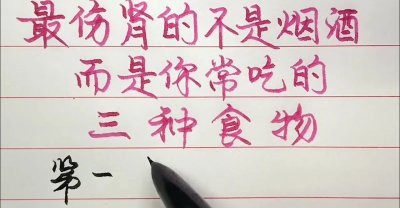 最伤肾的不是烟酒
而是你常吃的
三种食物
第一